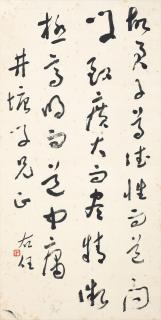 故君子尊德性而道問
學致廣大而盡精微
極高明而道中庸
井塘學兄正
右任